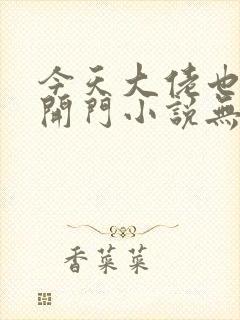 今天大佬也
開門小說無
香菜菜